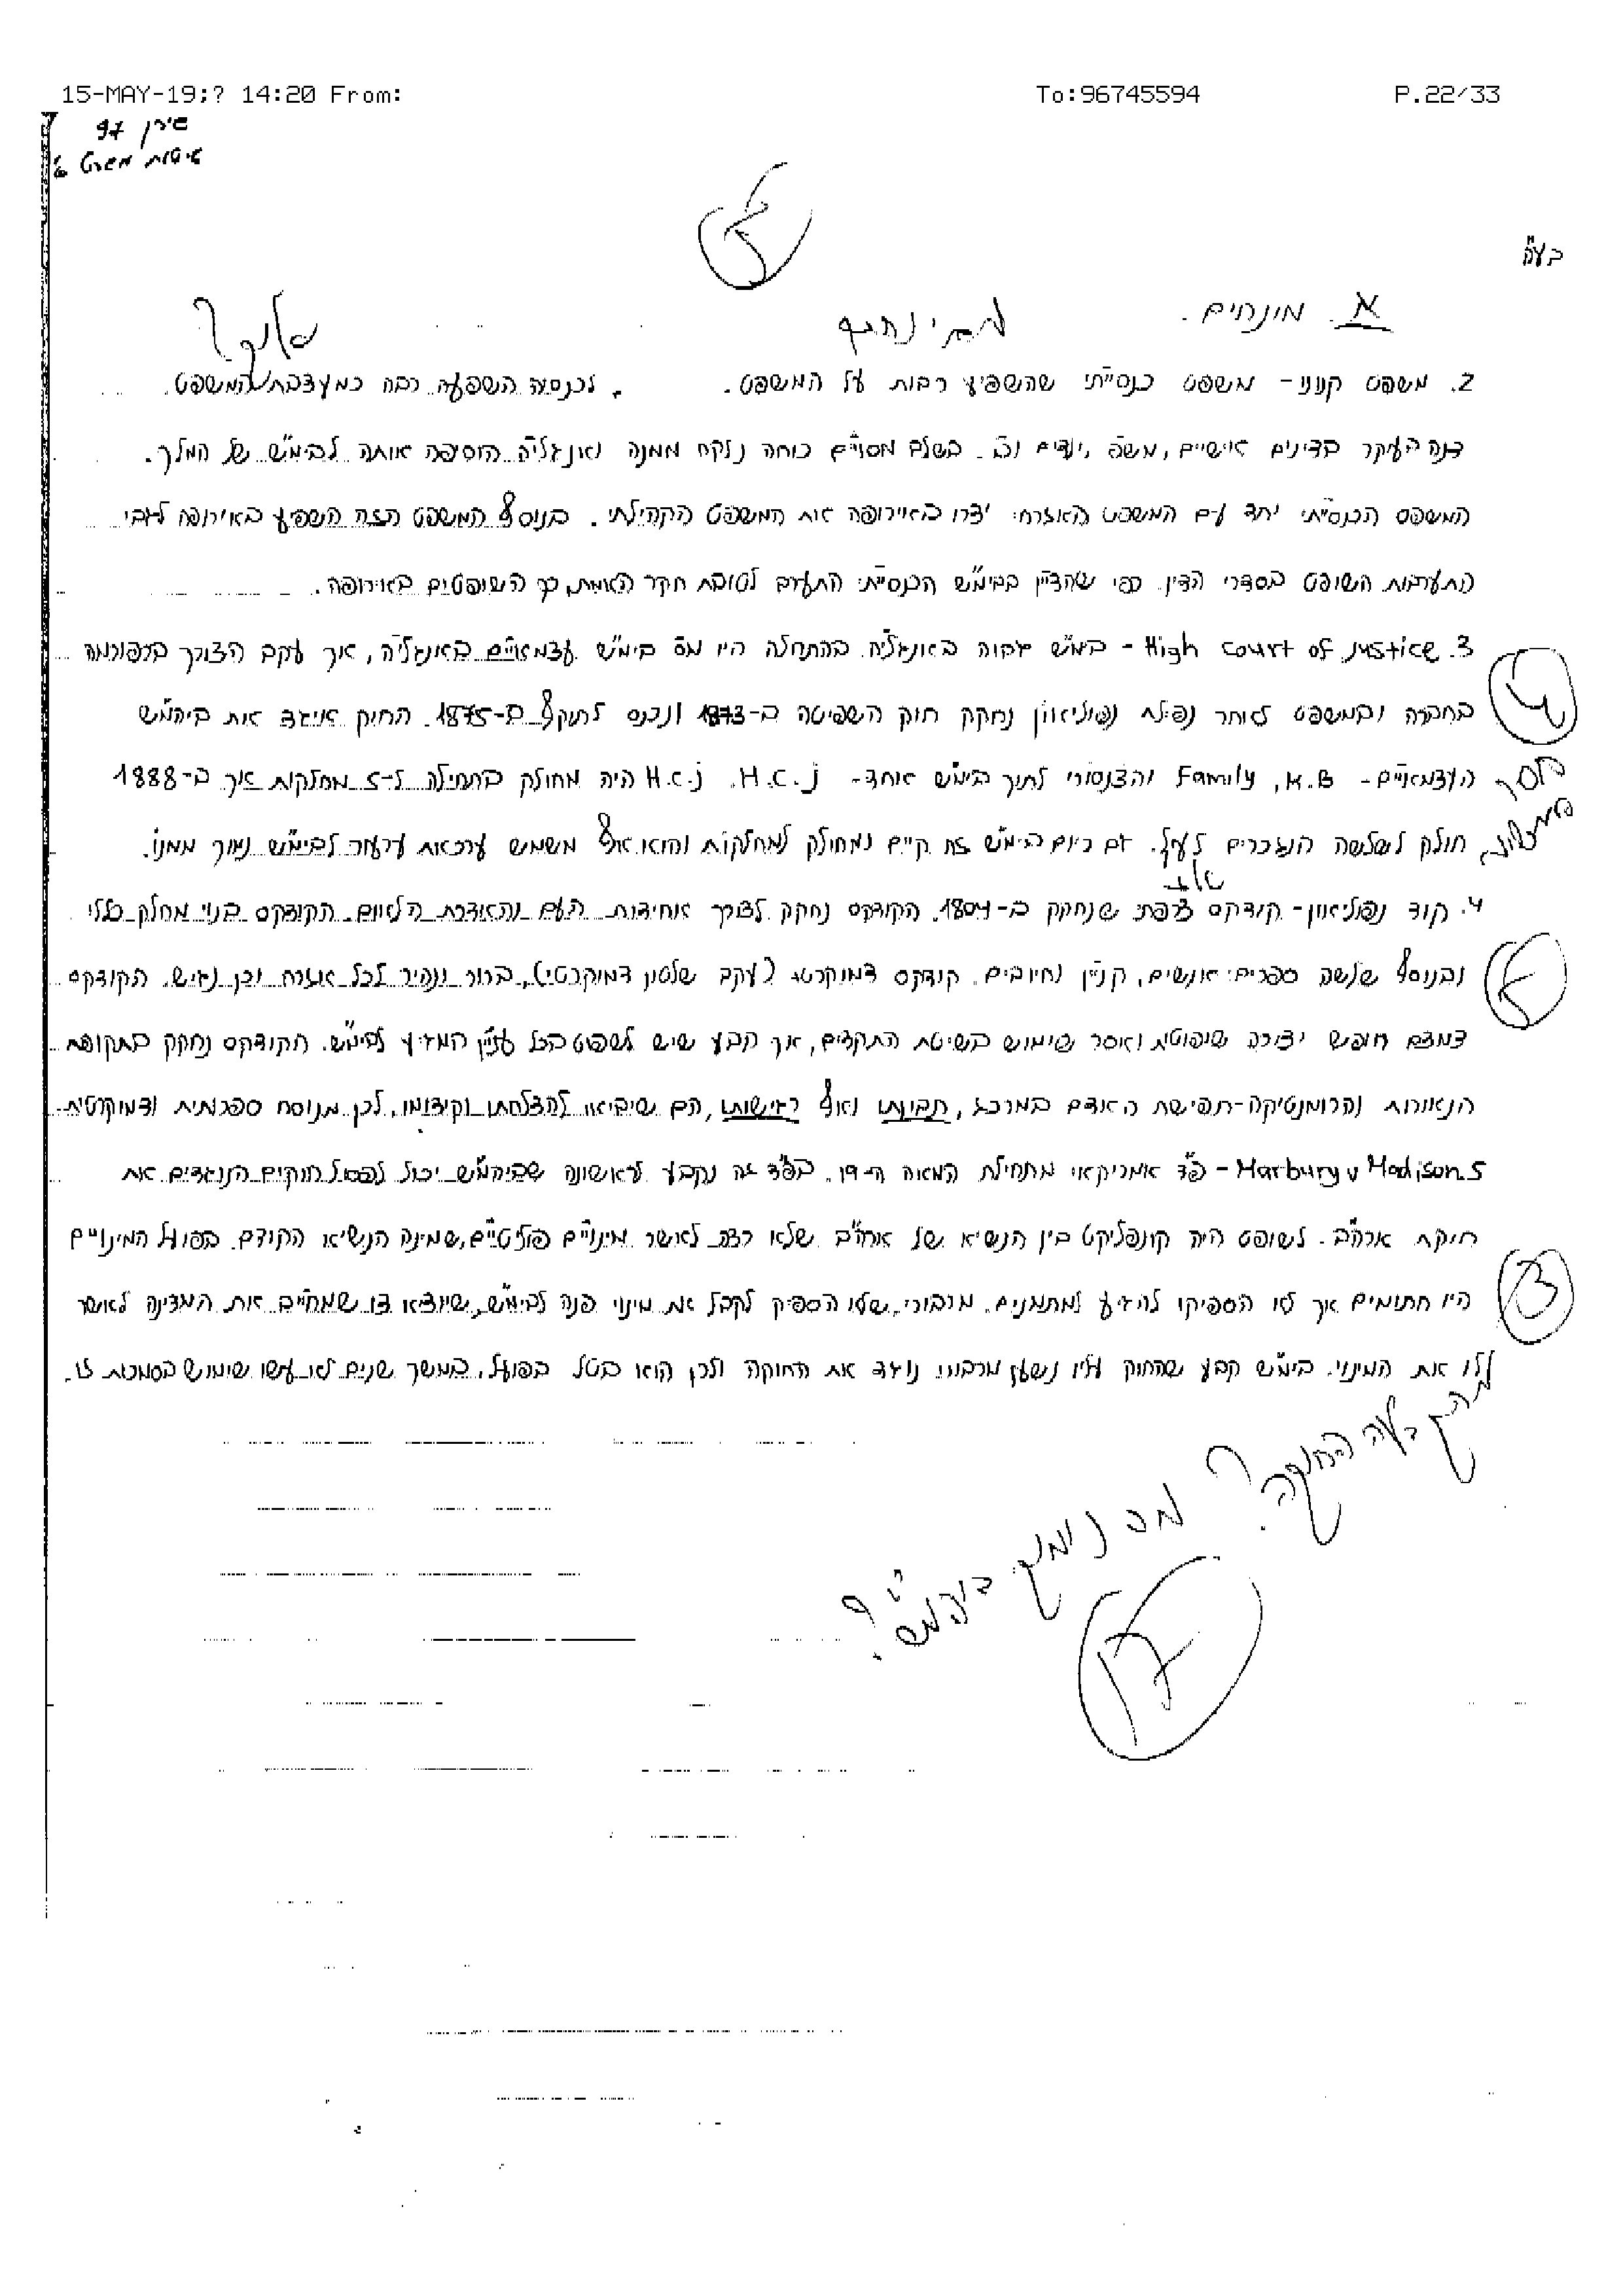 15-MAY-19;? 14:20 From: To:96745594 P.22/33
97
5
בעה
א. מונחים.
2. משפט קנוני - משפט כנסייתי שהשפיע רבות על המשפט. לכנסיה השפעה רבה כמעצבת המשפט.
דנה בעיקר בדינים אישיים, משפ' וכו'. בשלב מסויים כוחה נלקח ממנה ואנגליה הוסיפה אותה לבימ"ש של המלך.
המשפט הכנסייתי יחד עם המשפט האזרחי יצרו באירופה את המשפט הקהילתי. בנוסף המשפט הזה השפיע באירופה לגבי
התערבות השופט בסדרי הדין. כפי שהדיין בבימ"ש הכנסייתי התערב לטובת חקר האמת, כך השופטים באירופה.
3. High Court of Justice - בימ"ש גבוה באנגליה. בהתחלה היו מס' בימ"ש עצמאיים באנגליה, אך עקב הצורך ברפורמה
בחברה ובמשפט לאחר נפילת נפוליאון נחקק חוק השפיטה ב-1873 ונכנס לתוקף ב-1875. החוק איגד את ביהמ"ש
העצמאיים - Family, K.B והצ'נסורי לתוך בימ"ש אחד - H.C.J. H.C.J היה מחולק בתחילה ל-5 מחלקות אך ב-1888
חולק לשלשה הנזכרים לעיל. גם כיום בימ"ש זה קיים ומחולק למחלקות והוא אף משמש ערכאת ערעור לבימ"ש נמוך ממנו.
4. קוד נפוליאון - קודקס צרפתי שנחקק ב-1804. הקודקס נחקק לצורך אחידות העם והאדרת הלאום. הקודקס בנוי מחלק כללי
ובנוסף שלשה ספרים: אנשים, קניין וחיובים. קודקס דמוקרטי (עקב שלטון דמוקרטי), ברור ונהיר לכל אזרח וכן נגיש. הקודקס
צמצם חופש יצירה שיפוטית ואסר שימוש בשיטת התקדים, אך קבע שיש לשפוט בכל עניין המגיע לבימ"ש. הקודקס נחקק בתקופת
הנאורות והרומנטיקה - תפישת האדם במרכז, תבונתו ואף רגישותו, הם שיביאו להצלחתו וקידומו, לכן מנוסח ספרותית ודמוקרטית.
5. Marbury v Madison - פ"ד אמריקאי מתחילת המאה ה-19. בפ"ד זה נקבע לראשונה שביהמ"ש יכול לפסול חוקים הנוגדים את
חוקת ארה"ב. לשופט היה קונפליקט בין הנשיא של ארה"ב שלא רצה לאשר מינויים פוליטיים, שמינה הנשיא הקודם. בפועל המינויים
היו חתומים אך לא הספיקו להגיע למתמנים. מרבורי, שלא הספיק לקבל את מינויו פנה לבימ"ש, שיוציא צו שמחייב את המדינה לאשר
לו את המינוי. בימ"ש קבע שהחוק עליו נשען מרבורי נוגד את החוקה ולכן הוא בטל בפועל. במשך שנים לא עשו שימוש בסמכות זו.
4
5
3
מה קבעה החוקה? מה נימק ביהמ"ש?
17